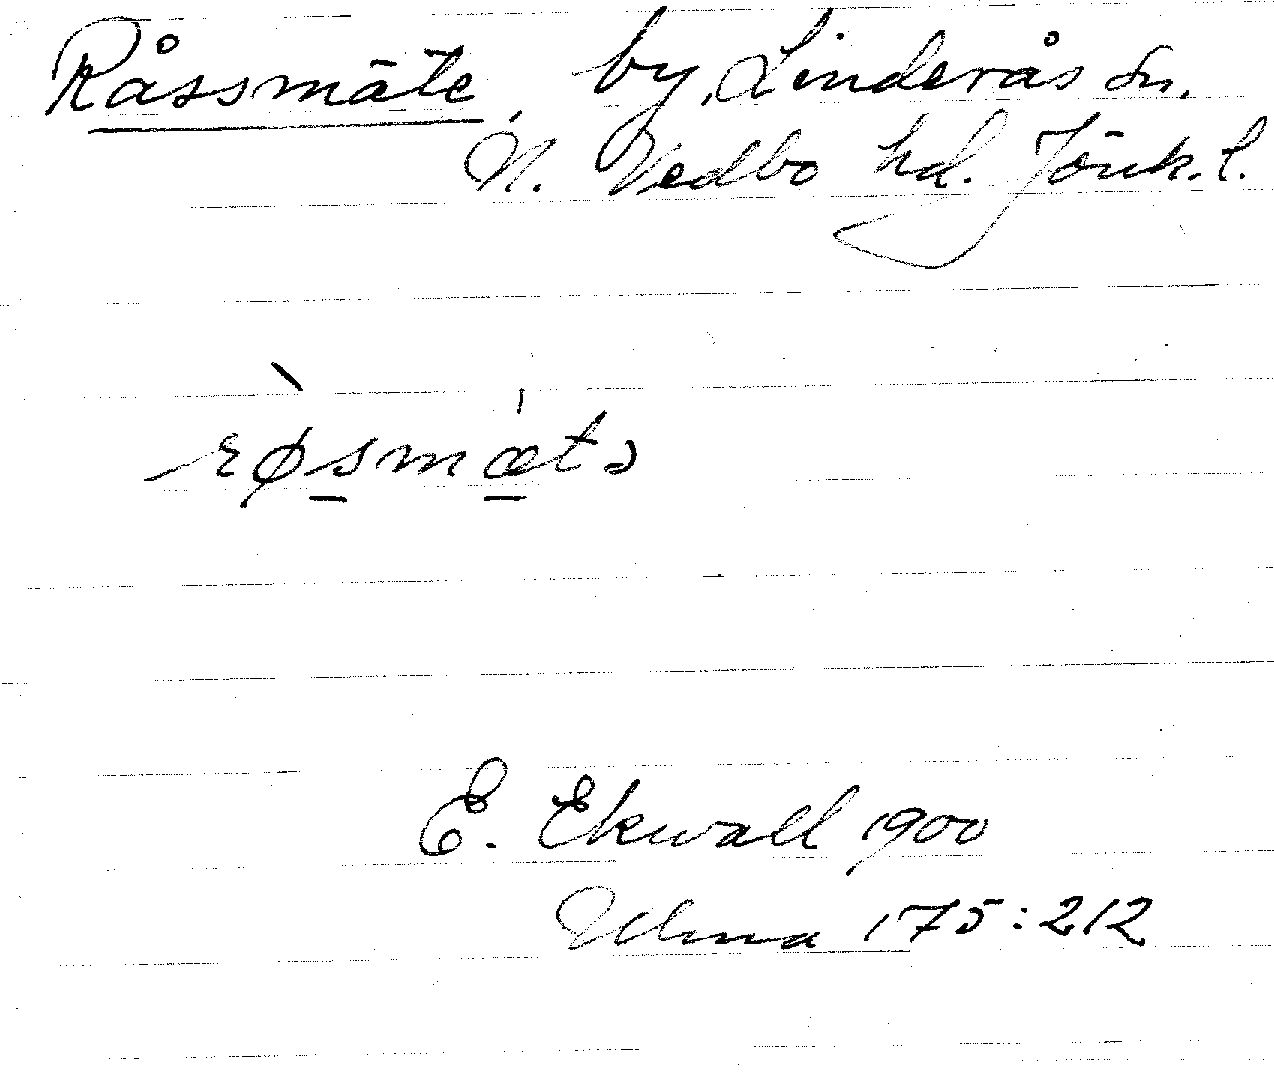 Råssmäte, by, Linderås sn.
N. Vedbo hd. Jönk. l.
rø̀s̱mæ̱̍tə
E. Ekwall 1900
Ulma 175:212